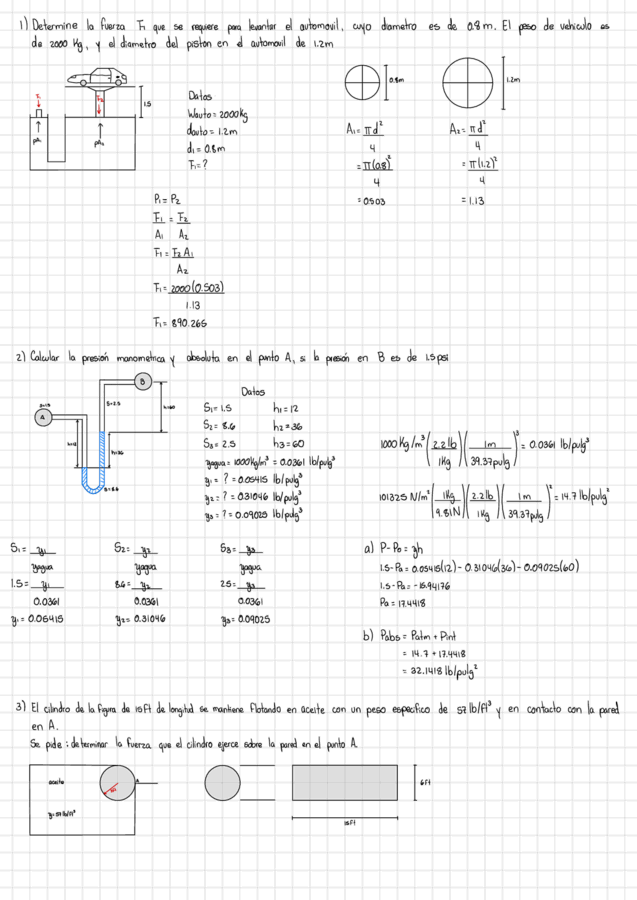 1) Determine la fuerza F₁ que se requiere para levantar el automovil, cuyo diametro es de 0.8 m. El peso de vehiculo es
de 2000 Kg, y el diametro del piston en el automovil de 1.2m
F₁
F₂
1.5
pA
pA₁
Datos
Wauto = 2000kg
dauto = 1.2m
d₁ = 0.8m
F₁ = ?
0.8m
1.2m
A₁ = πd²/4
= π(0.8)²/4
= 0.503
A₂ = πd²/4
= π(1.2)²/4
= 1.13
P₁ = P₂
F₁/A₁ = F₂/A₂
F₁ = F₂A₁/A₂
F₁ = 2000(0.503)/1.13
F₁ = 890.265
2) Calcular la presión manometrica y absoluta en el punto A, si la presión en B es de 1.5 psi
B
S=2.5
h=60
S=1.5
A
h=12
h=36
S=8.6
Datos
S₁ = 1.5 h₁ = 12
S₂ = 8.6 h₂ = 36
S₃ = 2.5 h₃ = 60
γagua = 1000Kg/m³ = 0.0361 lb/pulg³
γ₁ = ? = 0.05415 lb/pulg³
γ₂ = ? = 0.31046 lb/pulg³
γ₃ = ? = 0.09025 lb/pulg³
1000 Kg/m³ (2.2 lb/1Kg)(1m/39.37pulg)³ = 0.0361 lb/pulg³
101325 N/m² (1Kg/9.81N)(2.2 lb/1Kg)(1m/39.37pulg)² = 14.7 lb/pulg²
S₁ = γ₁/γagua
1.5 = γ₁/0.0361
γ₁ = 0.05415
S₂ = γ₂/γagua
8.6 = γ₂/0.0361
γ₂ = 0.31046
S₃ = γ₃/γagua
2.5 = γ₃/0.0361
γ₃ = 0.09025
a) P - P₀ = γh
1.5 - Pa = 0.05415(12) - 0.31046(36) - 0.09025(60)
1.5 - Pa = -15.94176
Pa = 17.4418
b) Pabs = Patm + Pint
= 14.7 + 17.4418
= 32.1418 lb/pulg²
3) El cilindro de la figura de 15Ft de longitud se mantiene flotando en aceite con un peso especifico de 57 lb/ft³ y en contacto con la pared
en A.
Se pide: determinar la fuerza que el cilindro ejerce sobre la pared en el punto A.
aceite
A
γ=57 lb/ft³
6Ft
15Ft